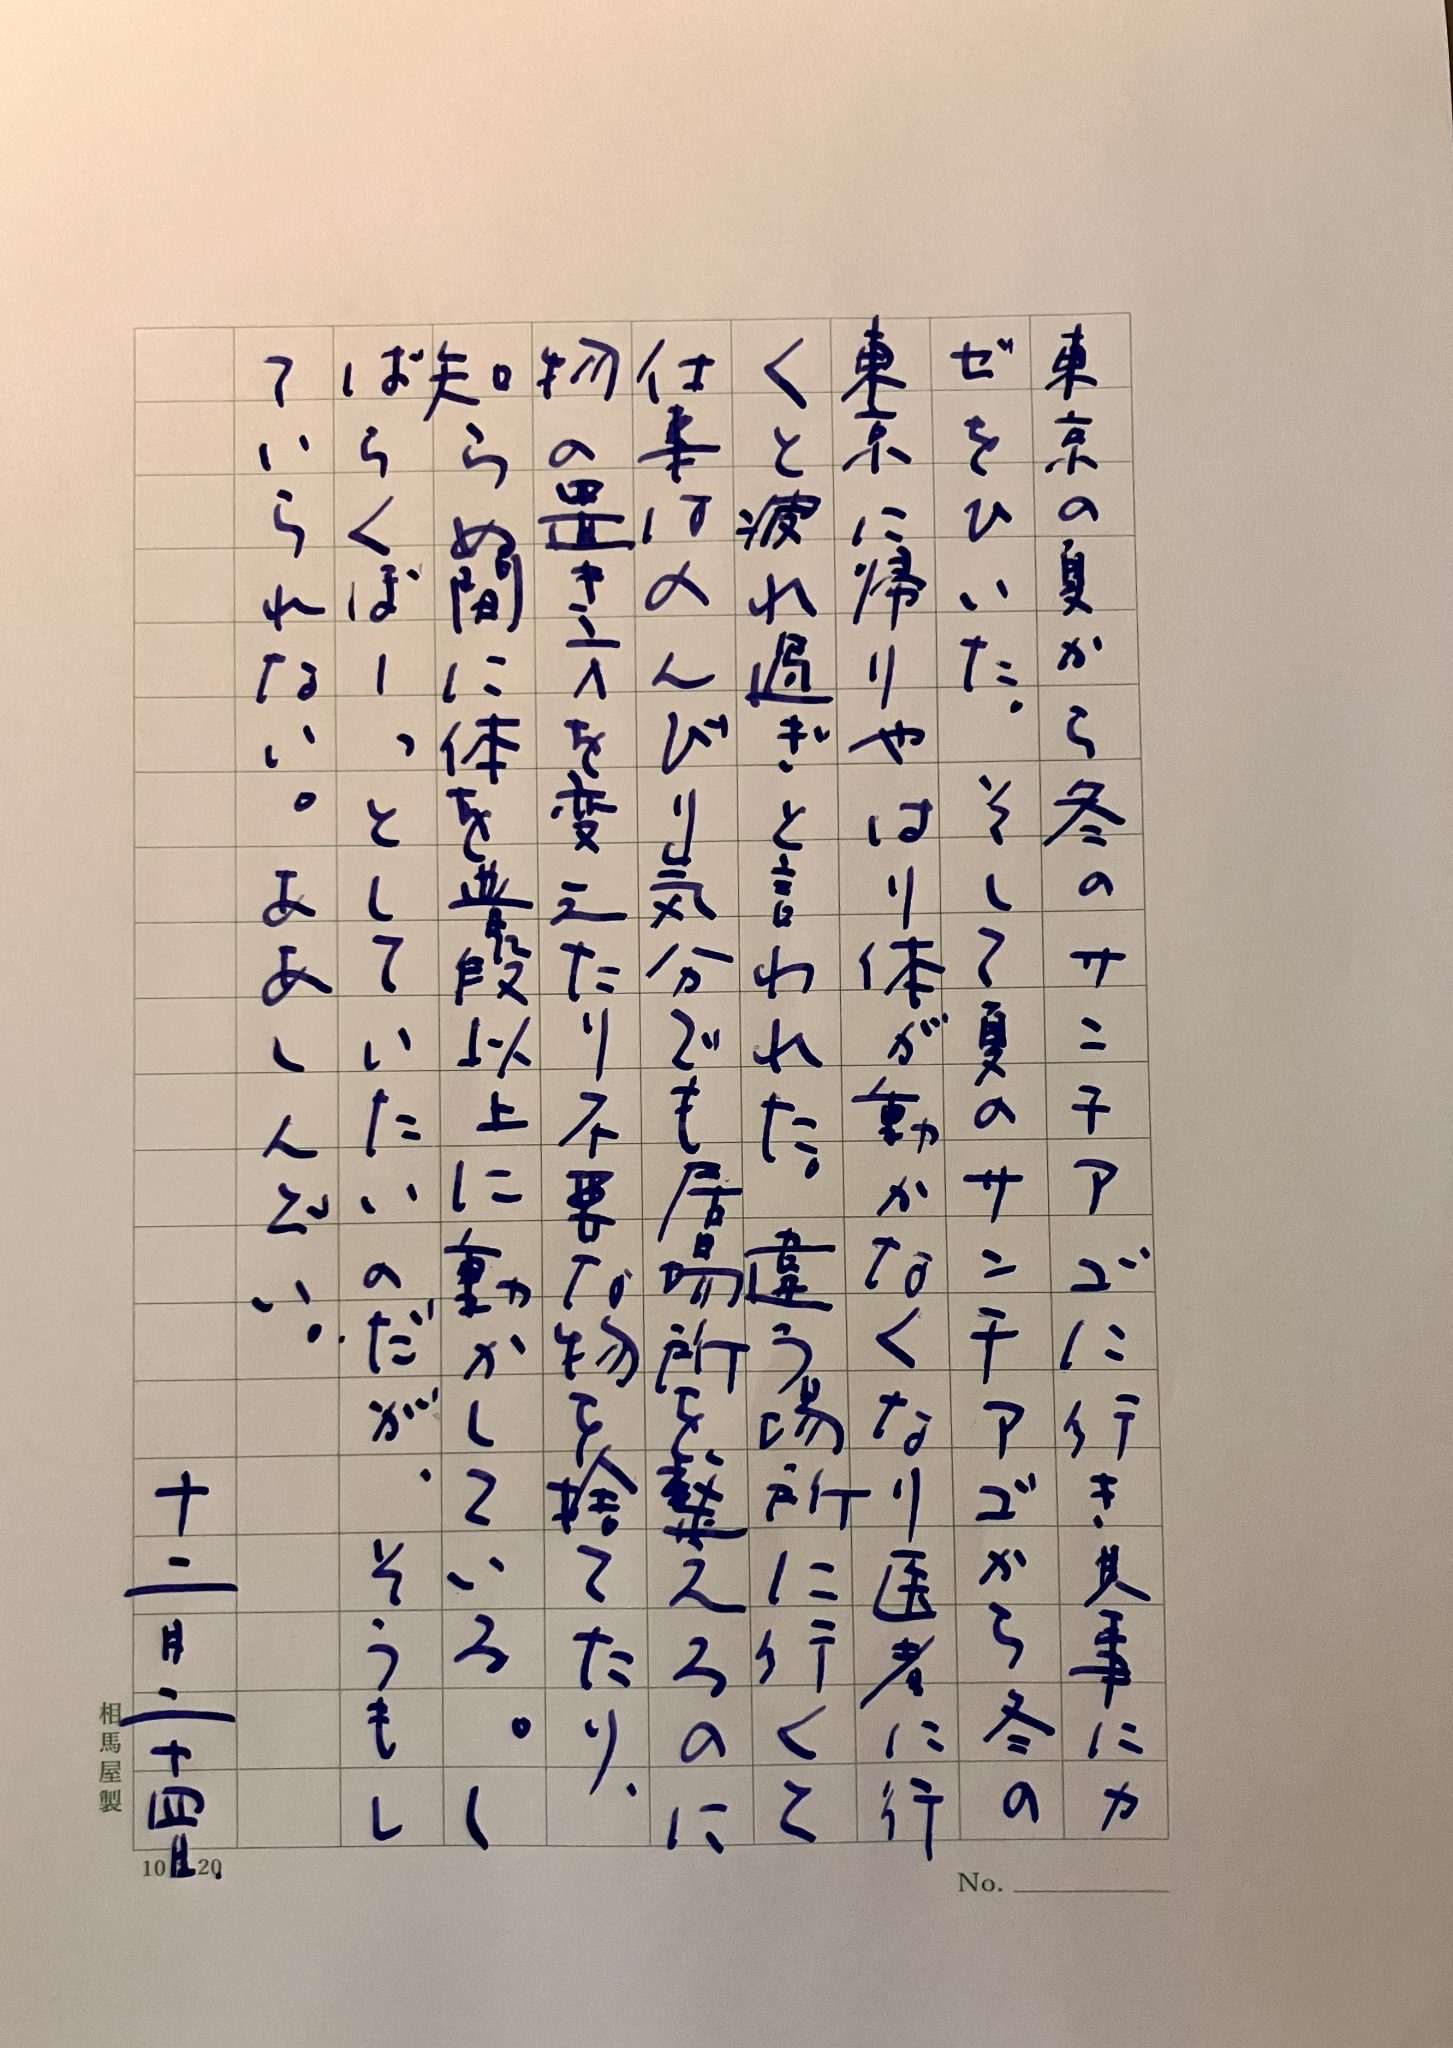 東京の夏から冬のサンチアゴに行き見事にカ
ゼをひいた。そして夏のサンチアゴから冬の
東京に帰りやはり体が動かなくなり医者に行
くと疲れ過ぎと言われた。違う場所に行くて
仕事はのんびり気分でも居場所を整えるのに
物の置き立入を変えたり不要な物を捨てたり、
知らぬ間に体を普段以上に動かしている。し
ばらくぼーっとしていたいのだが、そうもし
ていられない。ああしんどい。
十二月二十四日.
相馬屋製
10 20
No.